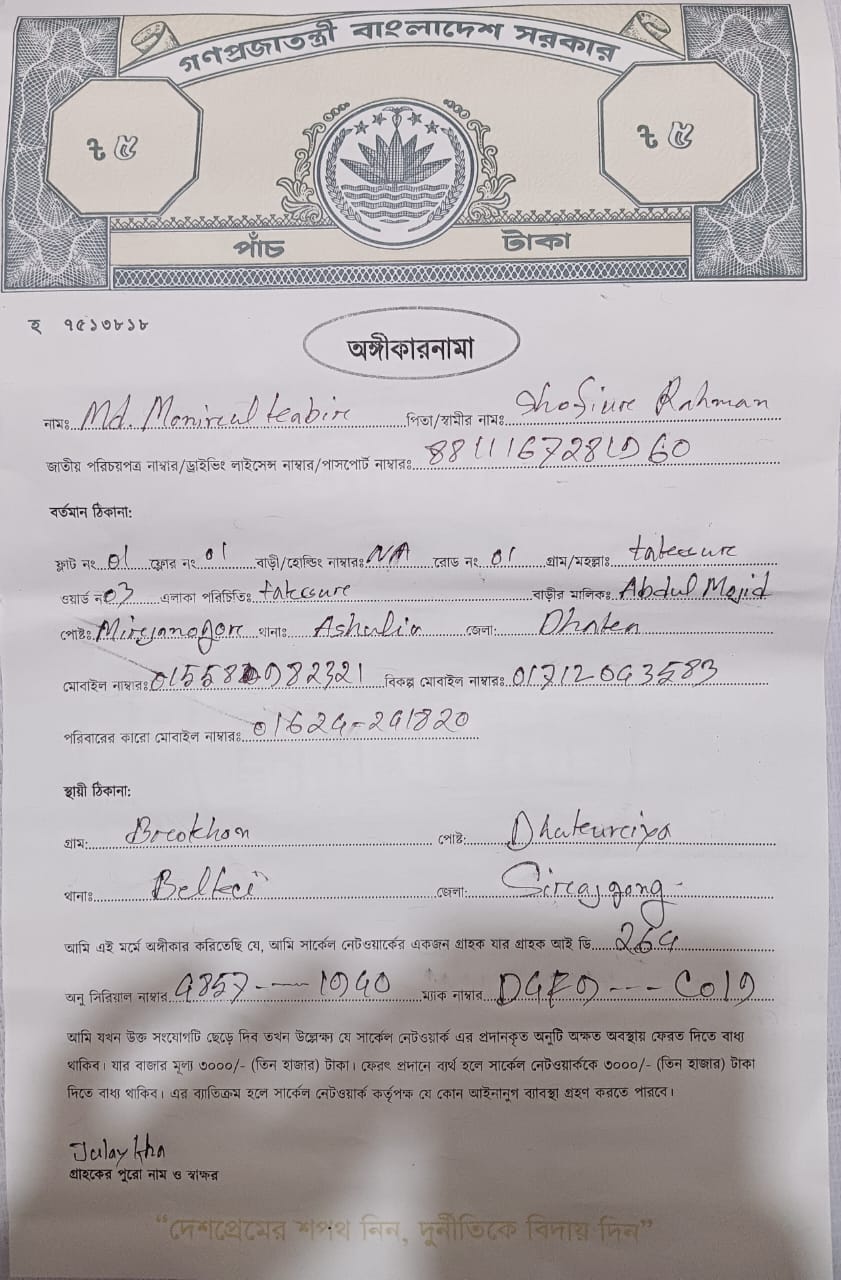 গণপ্রজাতন্ত্রী বাংলাদেশ সরকার
৳ ৫ ৳ ৫
পাঁচ টাকা
হ ৭৫১৩৮১৮
অঙ্গীকারনামা
নামঃ Md. Monirul kabir পিতা/স্বামীর নামঃ Shofiur Rahman
জাতীয় পরিচয়পত্র নাম্বার/ড্রাইভিং লাইসেন্স নাম্বার/পাসপোর্ট নাম্বারঃ
বর্তমান ঠিকানা:
ফ্লাট নং 01 ফ্লোর নং 01 বাড়ী/হোল্ডিং নাম্বারঃ NA রোড নং 01 গ্রাম/মহল্লাঃ
ওয়ার্ড নং 03 এলাকা পরিচিতিঃ বাড়ীর মালিকঃ Abdul Mojid
পোষ্টঃ Mirjanagar থানাঃ Ashulia জেলা: Dhaka
মোবাইল নাম্বারঃ বিকল্প মোবাইল নাম্বারঃ 01712043583
পরিবারের কারো মোবাইল নাম্বারঃ 01624-241820
স্থায়ী ঠিকানা:
গ্রাম: পোষ্ট:
থানাঃ Belkuci জেলা: Sirajgong
আমি এই মর্মে অঙ্গীকার করিতেছি যে, আমি সার্কেল নেটওয়ার্কের একজন গ্রাহক যার গ্রাহক আই ডি 264
অনু সিরিয়াল নাম্বার 4857---1940 ম্যাক নাম্বার
আমি যখন উক্ত সংযোগটি ছেড়ে দিব তখন উল্লেক্ষ্য যে সার্কেল নেটওয়ার্ক এর প্রদানকৃত অনুটি অক্ষত অবস্থায় ফেরত দিতে বাধ্য
থাকিব। যার বাজার মূল্য ৩০০০/- (তিন হাজার) টাকা। ফেরৎ প্রদানে ব্যর্থ হলে সার্কেল নেটওয়ার্ককে ৩০০০/- (তিন হাজার) টাকা
দিতে বাধ্য থাকিব। এর ব্যতিক্রম হলে সার্কেল নেটওয়ার্ক কর্তৃপক্ষ যে কোন আইনানুগ ব্যাবস্থা গ্রহণ করতে পারবে।
Julaykha
গ্রাহকের পুরো নাম ও স্বাক্ষর
“দেশপ্রেমের শপথ নিন, দুর্নীতিকে বিদায় দিন”